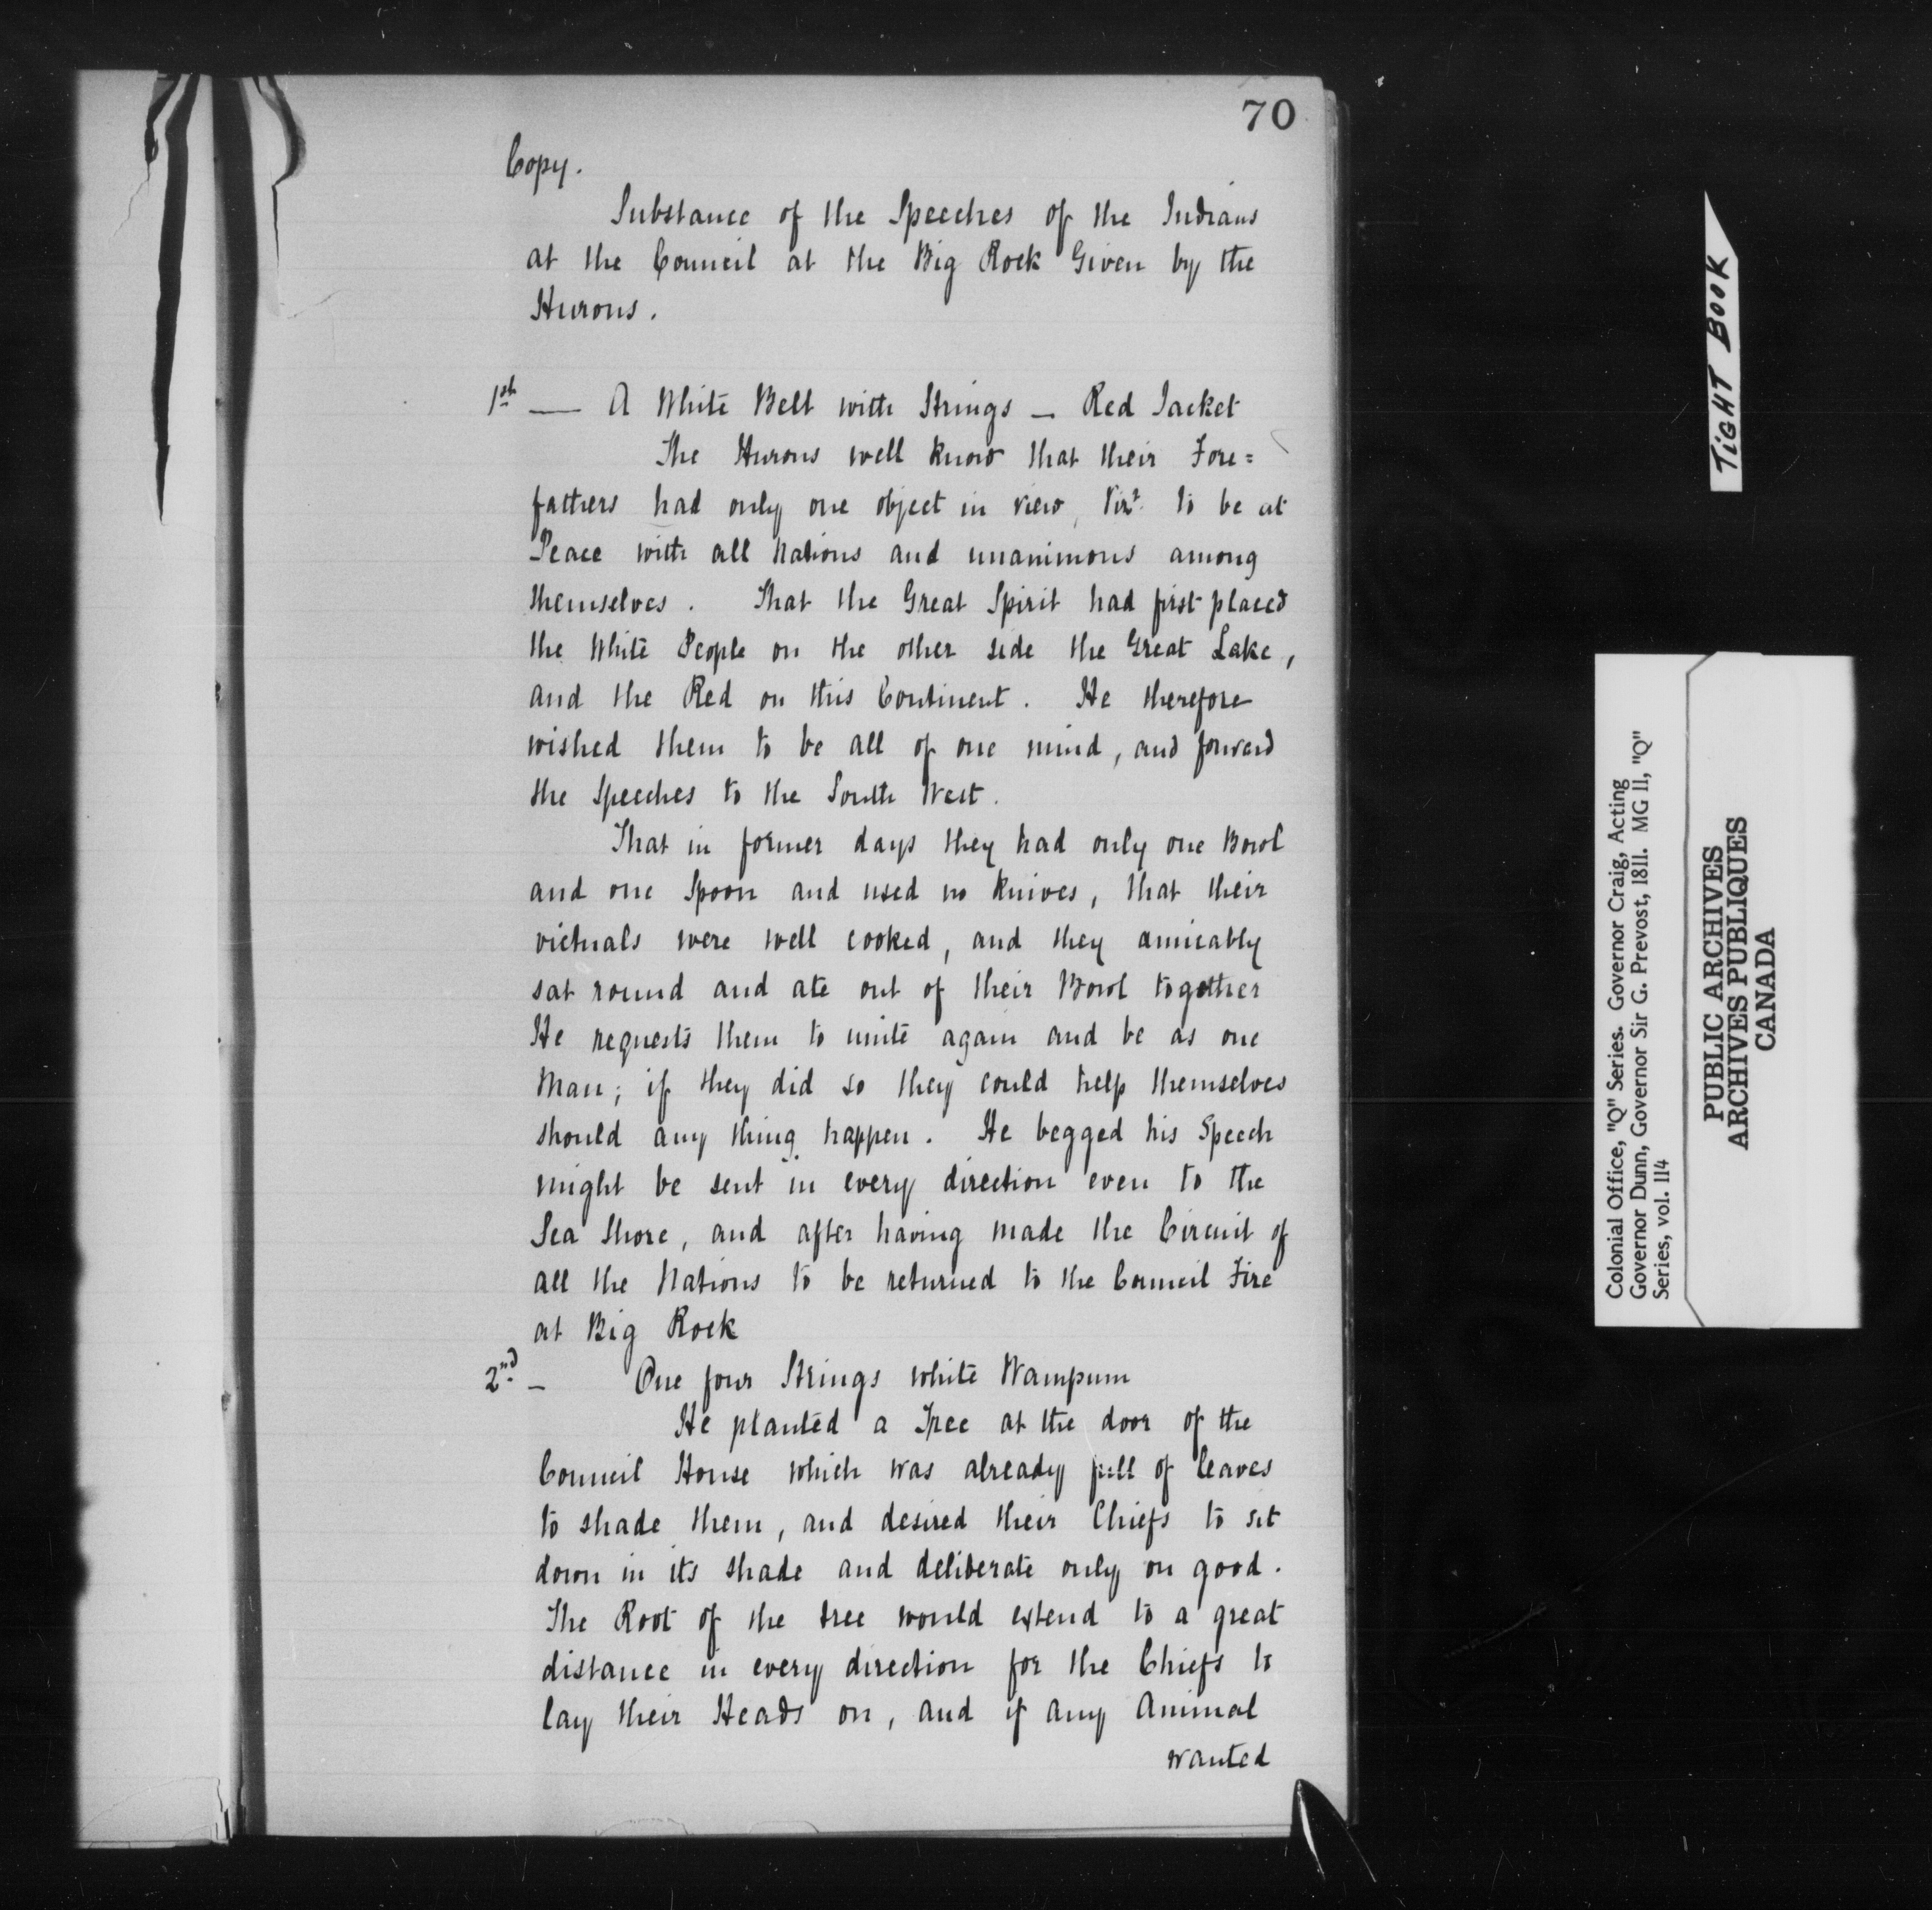 70
Copy.
Substance of the Speeches of the Indians
at the Council at the Big Rock Given by the
Hurons.
1st — A White Belt with Strings — Red Jacket
The Hurons well know that their Fore=
fathers had only one object in view, Vizt to be at
Peace with all Nations and unanimous among
themselves. That the Great Spirit had first placed
the White People on the other side the Great Lake,
and the Red on this Continent. He therefore
wished them to be all of one mind, and forward
the Speeches to the South West.
That in former days they had only one Bowl
and one Spoon and used no knives, that their
victuals were well cooked, and they amicably
sat round and ate out of their Bowl together
He requests them to unite again and be as one
Man; if they did so they could help themselves
should any thing happen. He begged his Speech
might be sent in every direction even to the
Sea Shore, and after having made the Circuit of
all the Nations to be returned to the Council Fire
at Big Rock
2nd — One four Strings white Wampum
He planted a Tree at the door of the
Council House which was already full of leaves
to shade them, and desired their Chiefs to sit
down in its shade and deliberate only on good.
The Root of the tree would extend to a great
distance in every direction for the Chiefs to
lay their Heads on, and if any Animal
wanted
TIGHT BOOK
Colonial Office, "Q" Series. Governor Craig, Acting
Governor Dunn, Governor Sir G. Prevost, 1811. MG 11, "Q"
Series, vol. 114
PUBLIC ARCHIVES
ARCHIVES PUBLIQUES
CANADA